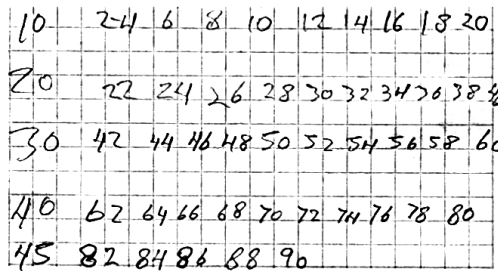 10 2 4 6 8 10 12 14 16 18 20
20 22 24 26 28 30 32 34 36 38
30 42 44 46 48 50 52 54 56 58 60
40 62 64 66 68 70 72 74 76 78 80
45 82 84 86 88 90